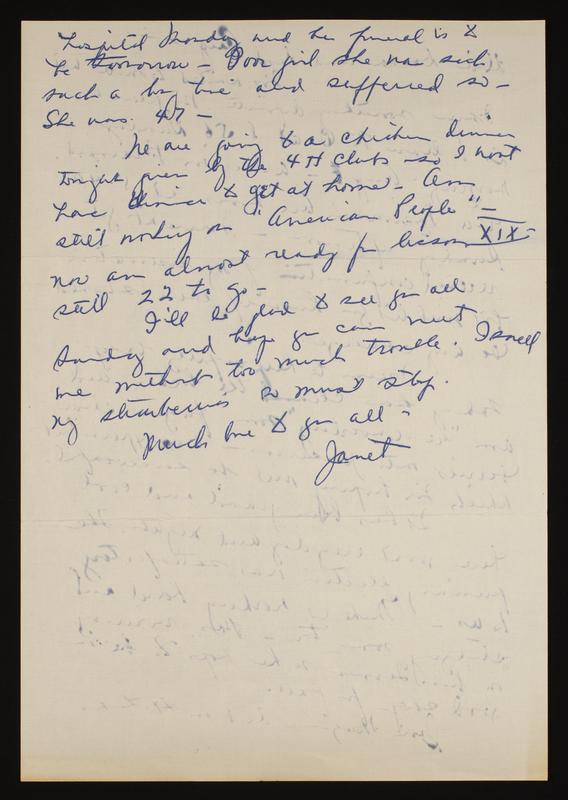 hospital Monday and the funeral is to
be tomorrow - Poor girl she was sick
such a long time and suffered so -
She was 47 -
We are going to a chicken dinner
tonight given by the 4H Clubs - so I wont
have dinner to get at home - Am
still working on "American People" -
now am almost ready for lesson XIX -
still 22 to go -
I'll be glad to see you all
Sunday and hope you can meet
me without too much trouble. I smell
my strawberries so must stop.
Much love to you all -
Janet